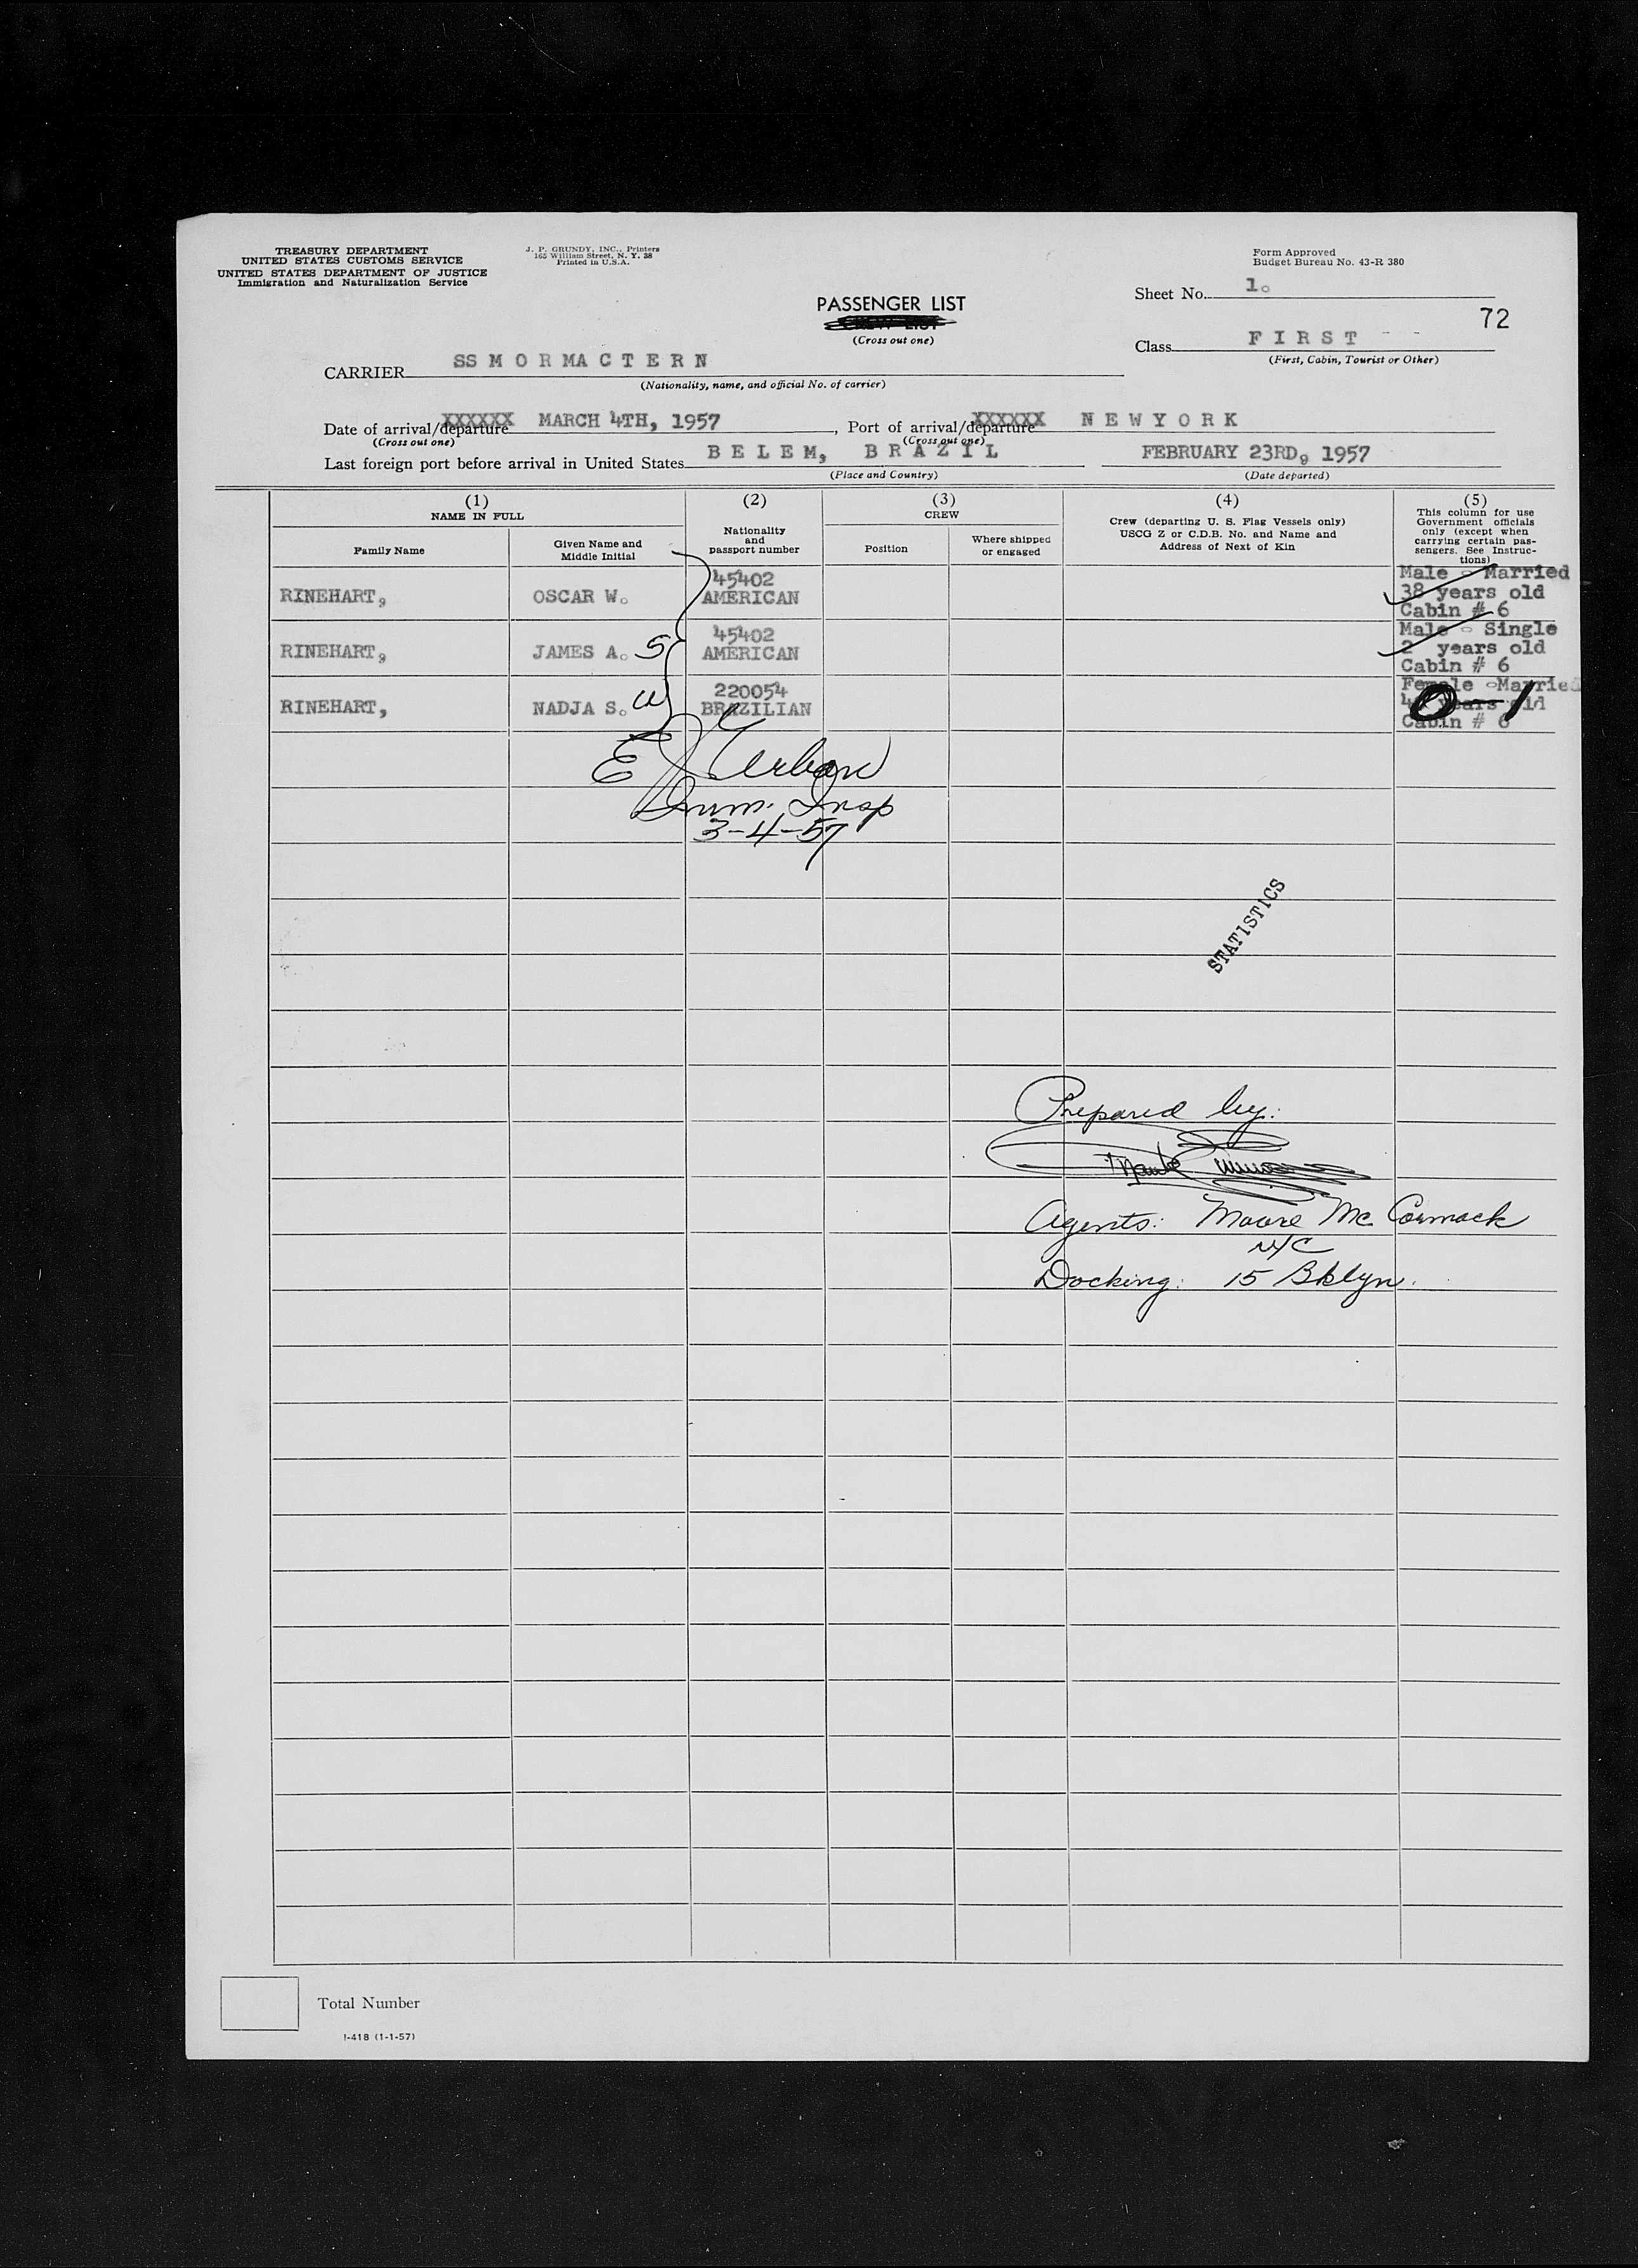 TREASURY DEPARTMENT
UNITED STATES CUSTOMS SERVICE
UNITED STATES DEPARTMENT OF JUSTICE
Immigration and Naturalization Service
J. P. GRUNDY, INC., Printers
165 William Street, N. Y. 38
Printed in U.S.A.
Form Approved
Budget Bureau No. 43-R 380
Sheet No. 1.
72
PASSENGER LIST
CREW LIST
(Cross out one)
Class FIRST
(First, Cabin, Tourist or Other)
CARRIER SS MORMACTERN
(Nationality, name, and official No. of carrier)
Date of arrival/departure XXXXXX MARCH 4TH, 1957, Port of arrival/departure XXXXXX NEW YORK
(Cross out one) (Cross out one)
Last foreign port before arrival in United States BELEM, BRAZIL FEBRUARY 23RD, 1957
(Place and Country) (Date departed)
(1) (2) (3) (4) (5)
NAME IN FULL
Family Name
Given Name and
Middle Initial
Nationality
and
passport number
CREW
Position
Where shipped
or engaged
Crew (departing U. S. Flag Vessels only)
USCG Z or C.D.B. No. and Name and
Address of Next of Kin
This column for use
Government officials
only (except when
carrying certain pas-
sengers. See Instruc-
tions)
RINEHART, OSCAR W. 45402
AMERICAN
Male - Married
38 years old
Cabin # 6
RINEHART, JAMES A. S 45402
AMERICAN
Male - Single
2 years old
Cabin # 6
RINEHART, NADJA S. W 220054
BRAZILIAN
Female - Married
years old
Cabin # 6
0-1
E J Urban
Imm. Insp
3-4-57
STATISTICS
Prepared by:
Agents: Moore Mc Cormack
Docking: 15 Bklyn.
Total Number
I-418 (1-1-57)